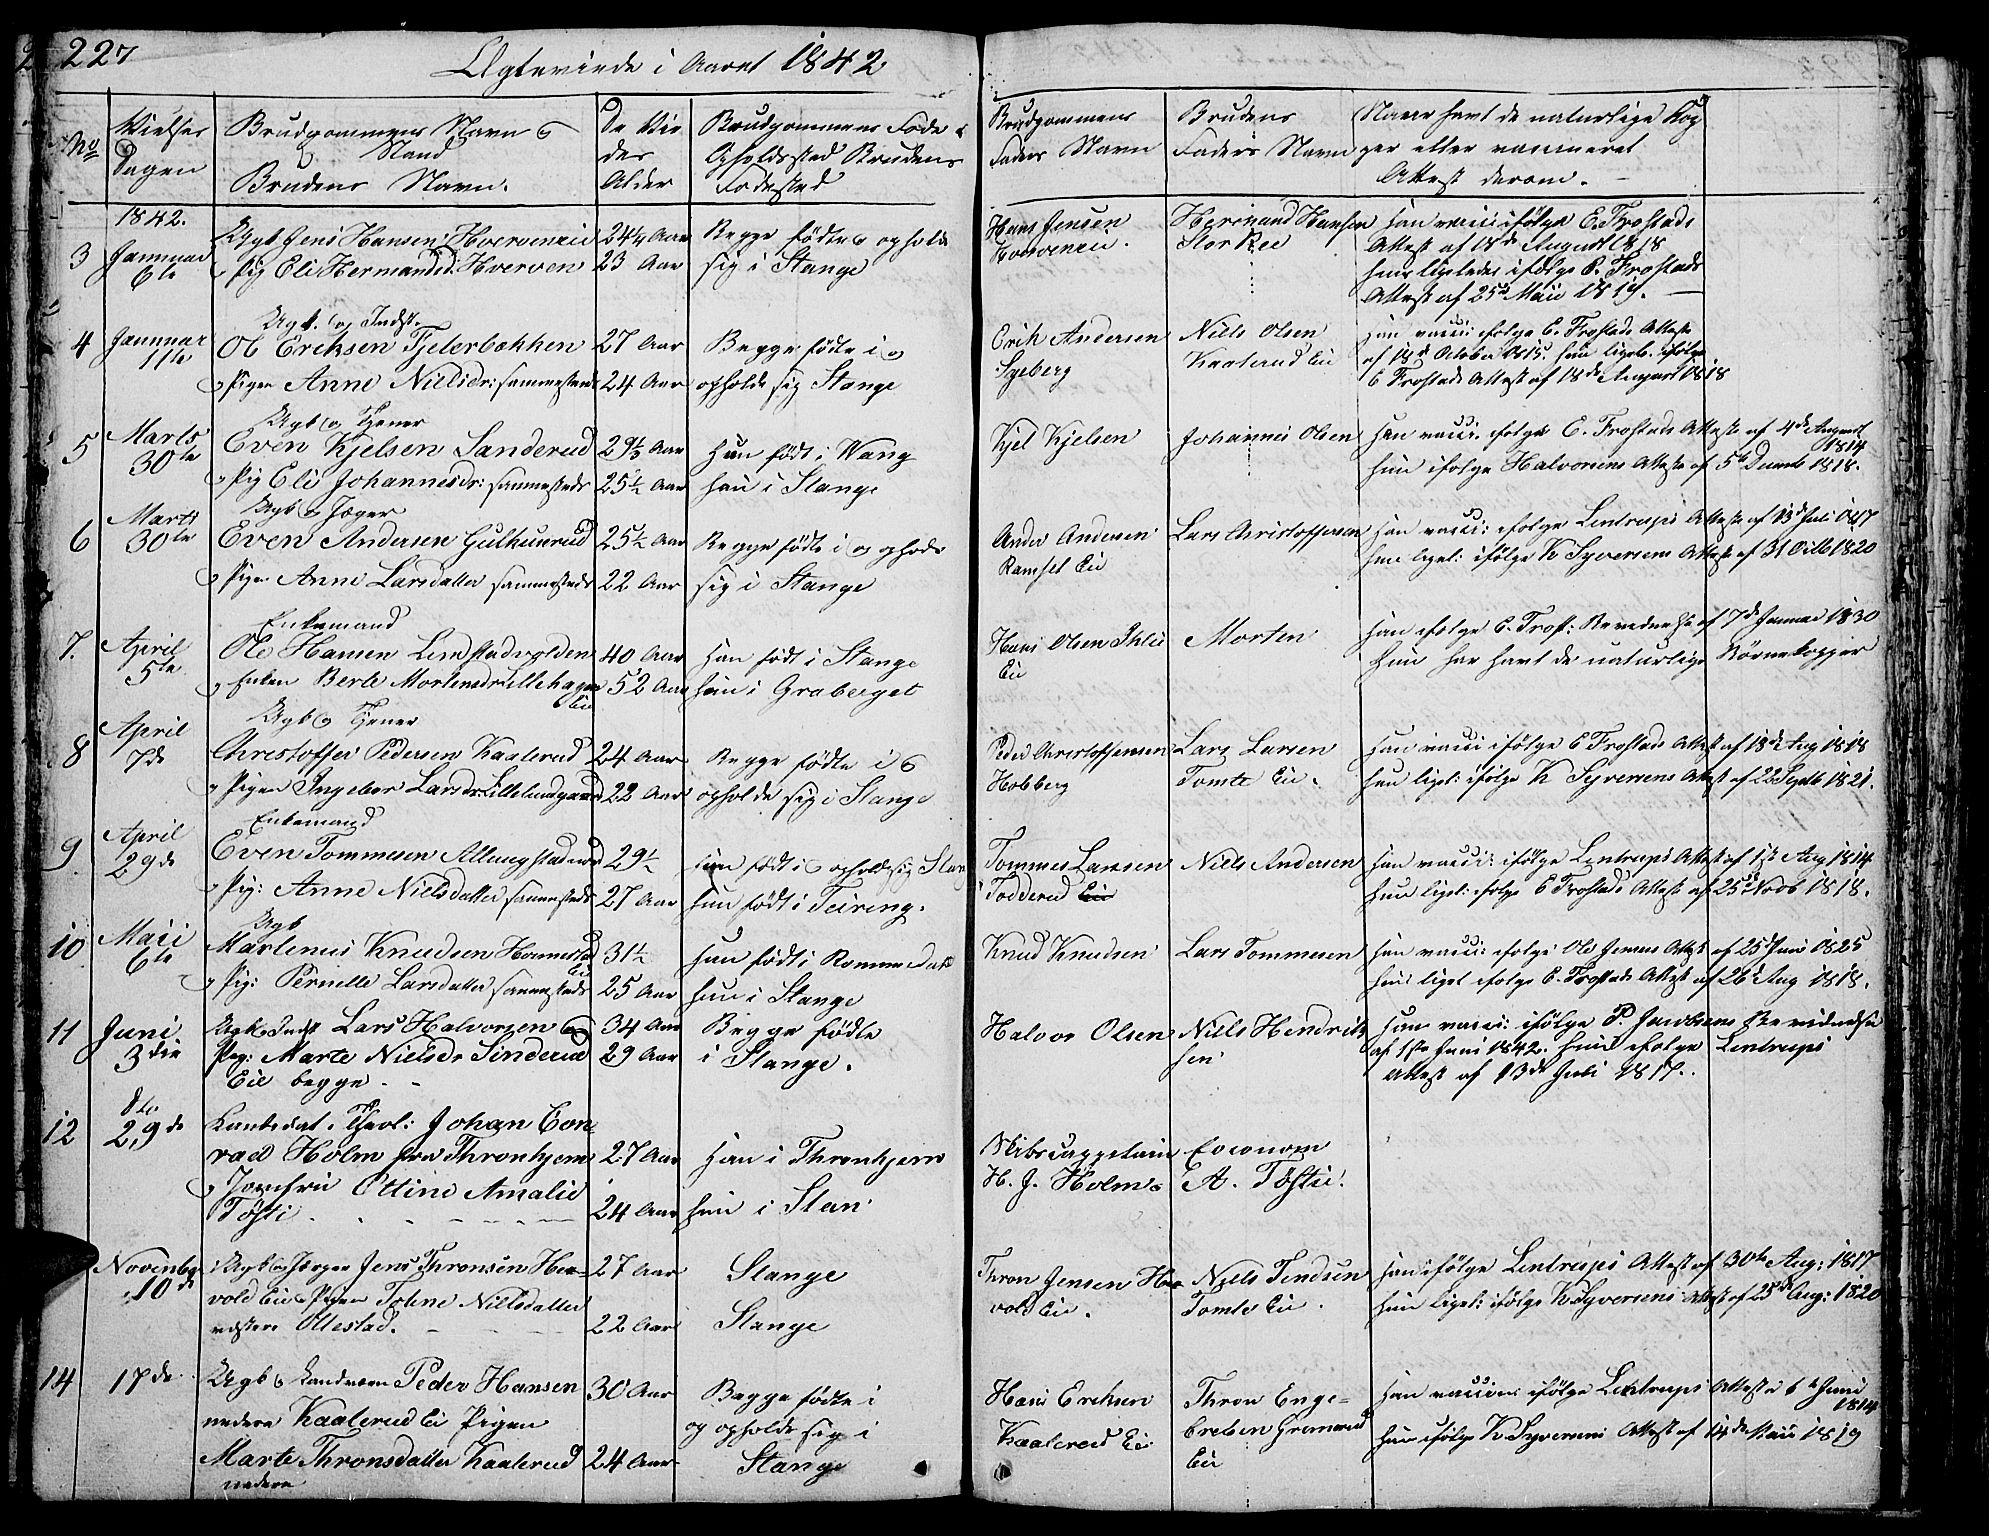 227
Ægteviede i Aaret 1842
No
Vielses Dagen
Brudgommens Navn & Stand
Brudens Navn.
De Vie
des
Alder
Brudgommens Føde &
Opholdssted Brudens
Fødested
Brudgommens
Faders Navn
Brudens
Faders Navn
Naar havt de naturlige Kop
per eller vaccineret
Attest derom.
1842.
3
Januar
6te
Ugk. Jens Hansen Hverveneie
Pig Eli Hermandsd: Hverven
24¼ Aar
23 Aar
Begge fødte & opholde
sig i Stange
Hans Jensen
Hverveneie.
Hermand Hansen
Stor Ree
Han vacci ifølge E. Frostads
Attest af 18de August 1818
hun ligeledes ifølge E. Frostads
Attest af 25de Maii 1819.
4
Januar
11te
Ugk. og Indst.
Ol Eriksen Tjelerbakken
Pigen Anne Nielsdr: sammesteds
27 Aar
24 Aar
Begge fødte i &
opholde sig Stange
Erik Andersen
Sgeberg
Niels Olsen
Kaalerud Eie
Han vacci: ifølge E. Frostads Attest
af 18de October 1815. hun ligel. ifølge
E Frostads Attest af 18de August 1818
5
Marts
30te
Ugk og Tjener
Even Kjelsen Sanderud
Pig Eli Johannesdr: sammesteds
29⅓ Aar
25½ Aar
Han født i Vang
hun i Stange
Kjel Kjelsen
Johannes Olsen
Han vacci. ifølge E. Frostads Attest af 4de August
1814
hun ifølge Halvorsens Attest af 5te Decemb 1818.
6
Marts
30te
Ugk og Jæger
Even Andersen Gulhuusrud
Pigen Anne Larsdatter sammesteds
25½ Aar
22 Aar
Begge fødte i og opholde
sig i Stange
Ander Andersen
Ramset Eie
Lars Christoffersen
Han vacci: ifølge Lentrups Attest af 13de Juli 1817
hun ligel: ifølge K Syversens Attest af 31 Octb 1820
7.
April
5te
Enkemand
Ole Hansen Lemstadvolden
Enken Berte Mortensdr Lillehagen
Eie
40 Aar
52 Aar
Han født i Stange
hun i Graberget
Hans Olsen Ihle
Eie
Morten
Han ifølge E. Frost: Bevidnelse af 17de Januar 1830
Hun har havt de naturlige Børnekopper
8
April
7de
Ugk og Tjener
Christoffer Pedersen Kaalerud
Pigen Ingebor Larsdr:
24 Aar
22 Aar
Begge fødte i &
opholde sig i Stange
Peder Christoffersen
Hobberg
Lars Larsen
Tomte Eie.
Han vacci ifølge E Frostads Attest af 18de Aug 1818
hun ligel: ifølge K Syversens Attest af 22 Septb 1821.
9
April
29de
Enkemand
Even Tommesen
Pig: Anne Nielsdatter sammesteds
29½
27 Aar
Han født i & opholdsig Stang
hun født i Feiring.
Tommes Larsen
Todderud Eie
Niels Andersen
Han vacci: ifølge Lentrups Attest af 1ste Aug 1814
Hun ligel: ifølge E Frostads Attest af 25de Novb 1818.
10
Maii
6te
Ugk
Martinus Knudsen Hommestad
Eie
Pig: Pernille Larsdatter sammesteds
31½
25 Aar
Han født i Rommedal
hun i Stange
Knud Knudsen
Lars Tommesen
Han vacci: ifølge Ole Jensens Attest af 25de Juni 1825
hun ligel ifølge E. Frostads Attest af 26de Aug 1818.
11
Juni
3die
Ugk & Indst Lars Halvorsen &
Pig: Marte Nielsdr Sinderud
Eie begge.
34 Aar
29 Aar
Begge fødte
i Stange.
Halvor Olsen
Niels Hendrik
sen
Han vacci: ifølge P. Jacobsens Bevidnelse
af 1ste Juni 1842. Hun ifølge Lentrups
Attest af 13de Juli 1817.
12
dto
29de
Candidat. Theol: Johan Con
rad Holm fra Thronhjem
Jomfru Ottine Amalie
Tøsti
27 Aar
24 Aar
Han i Thronhjem
hun i Stan
Skibscappetain
H. J. Holm
Economen
A. Tøstie.
Novenber
10de
Ugk og Jæger Jens Thronsen Her
vold Eie & Pigen Tohne Nielsdatter
vestere Ottestad.
27 Aar
22 Aar
Stange
Stange
Thron Jensen Her
vold Eie.
Niels Tendsen
Tomte Eie.
Han ifølge Lentrups Attest af 30te Aug: 1817
hun ligel: ifølge K Syversens Attest af 25de Aug: 1820
14
17de
Ugk & Landværn Peder Hansen
nedere Kaalerud Ei Pigen
Marte Thronsdatter Kaalerud
nedere
30 Aar
24 Aar
Begge fødte i
og opholde sig i
Stange
Hans Eriksen
Kaalerud Eie
Thron Enge=
bretsen
Eie
Han vaccine ifølge Lentrups Attest 6te Juni
1814
hun ifølge K Syversens Attest af 14de Maii 1819